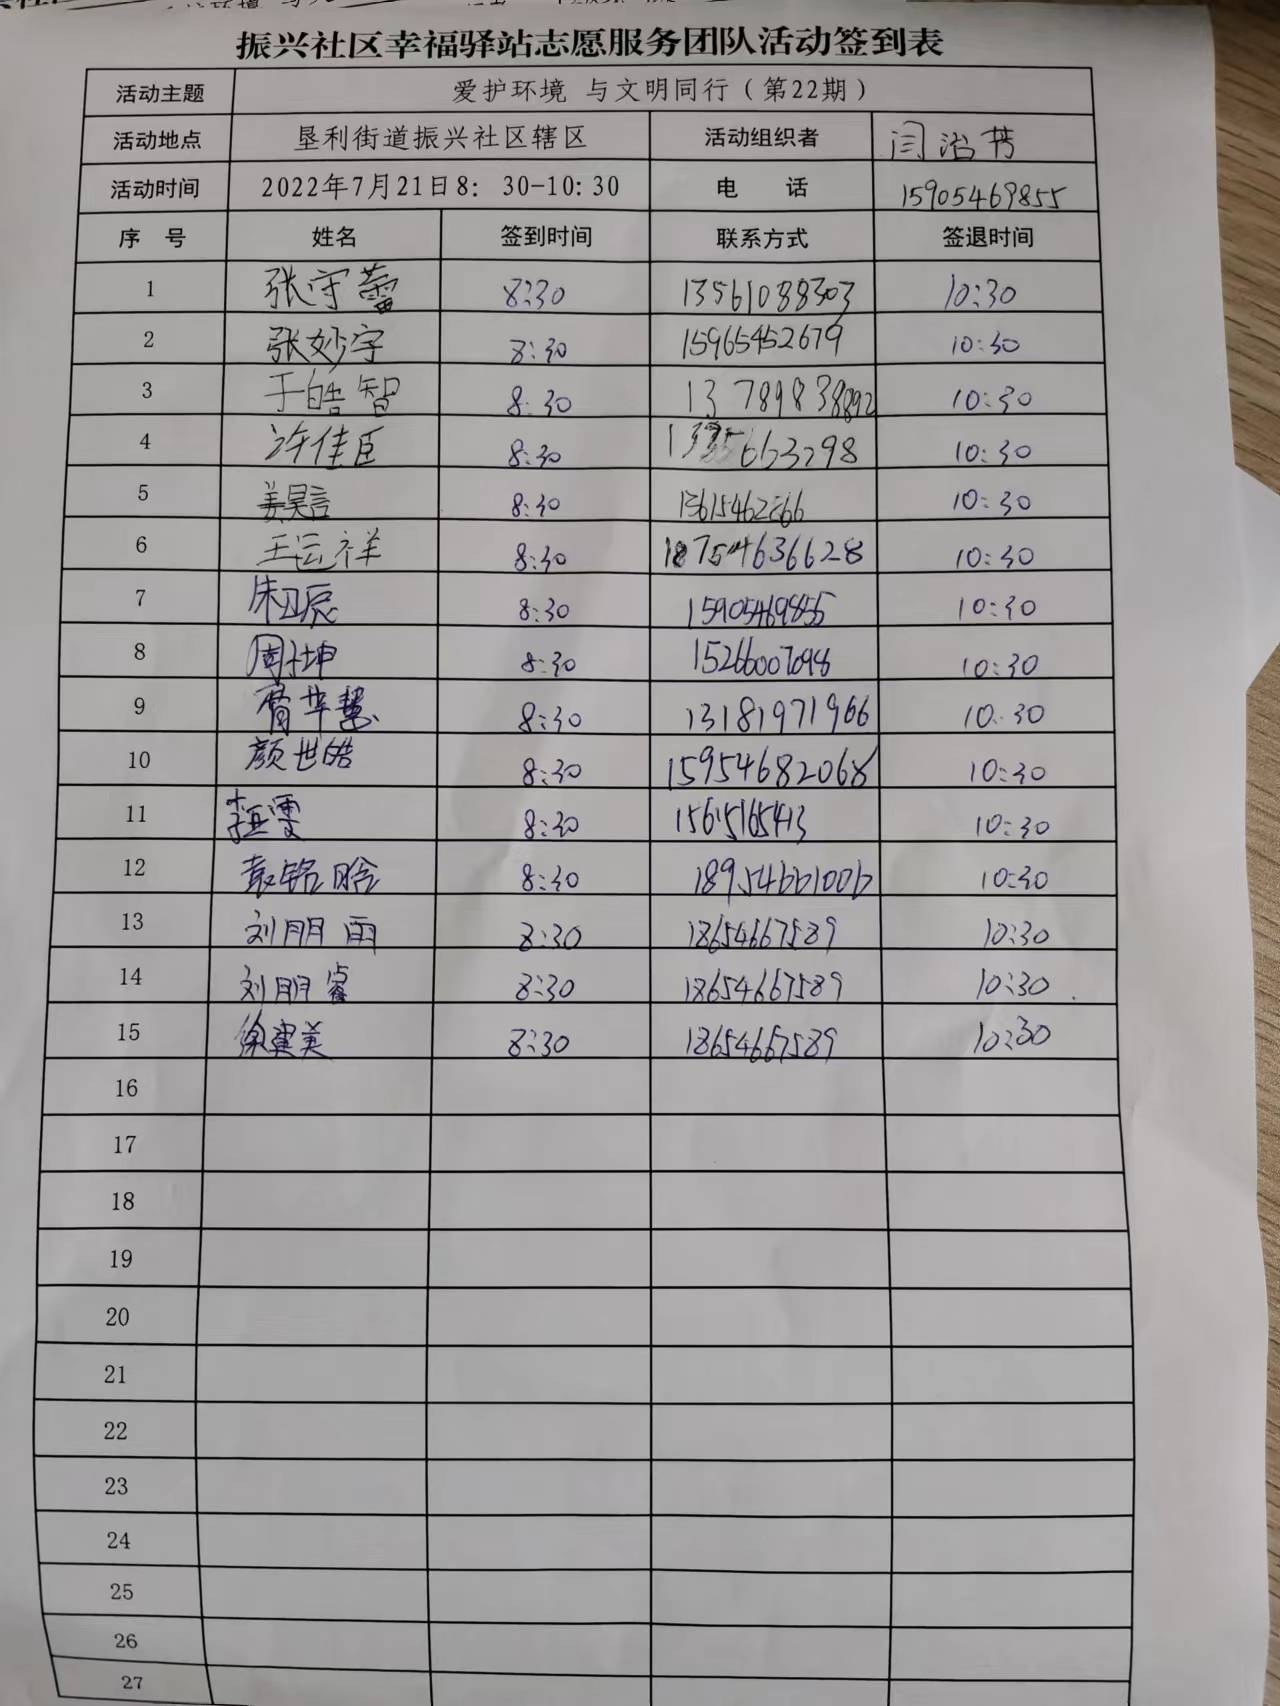 振兴社区幸福驿站志愿服务团队活动签到表
活动主题 爱护环境 与文明同行（第22期）
活动地点 垦利街道振兴社区辖区 活动组织者 闫治芳
活动时间 2022年7月21日8：30-10:30 电 话 15905469855
序 号 姓名 签到时间 联系方式 签退时间
1 张守蕾 8:30 13561088303 10:30
2 张妙宇 8:30 15965452679 10:30
3 于皓智 8:30 13789838892 10:30
4 许佳臣 8:30 10:30
5 姜昊言 8:30 10:30
6 王运祥 8:30 18754636628 10:30
7 8:30 15905469855 10:30
8 周坤 8:30 15266007098 10:30
9 8:30 13181971966 10:30
10 颜世皓 8:30 15954682068 10:30
11 8:30 15615165413 10:30
12 袁铭晗 8:30 18954661006 10:30
13 刘朋雨 8:30 18654667589 10:30
14 刘朋睿 8:30 18654667589 10:30
15 徐建美 8:30 18654667589 10:30
16
17
18
19
20
21
22
23
24
25
26
27